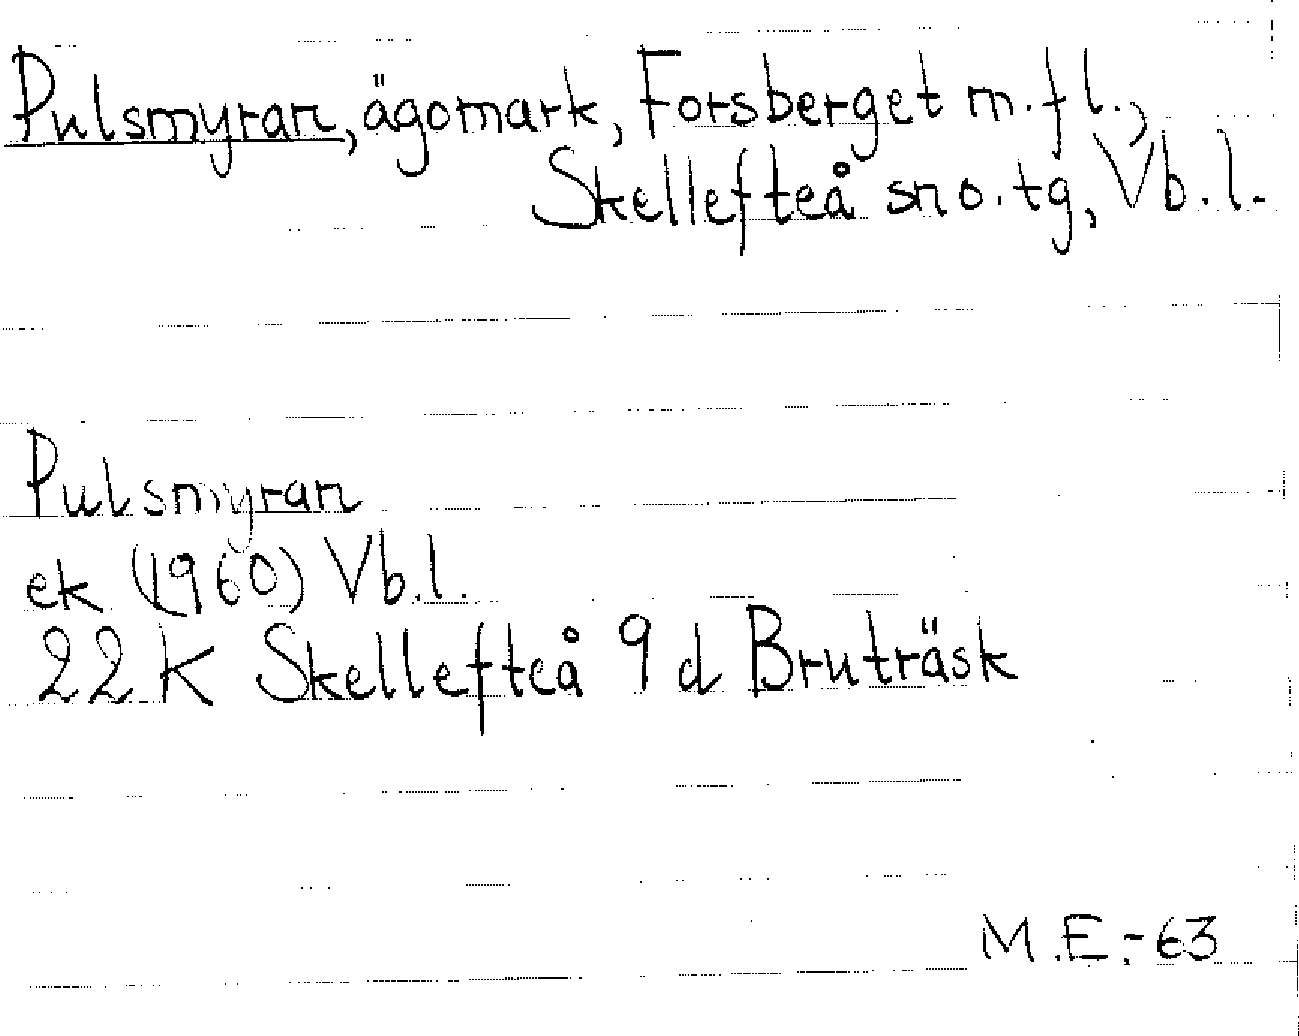 Pulsmyran, ägomark, Forsberget m.fl.,
Skellefteå sn o. tg, Vb.l.
Pulsmyran
ek (1960) Vb.l.
22 K Skellefteå 9 d Bruträsk
M.E.-63